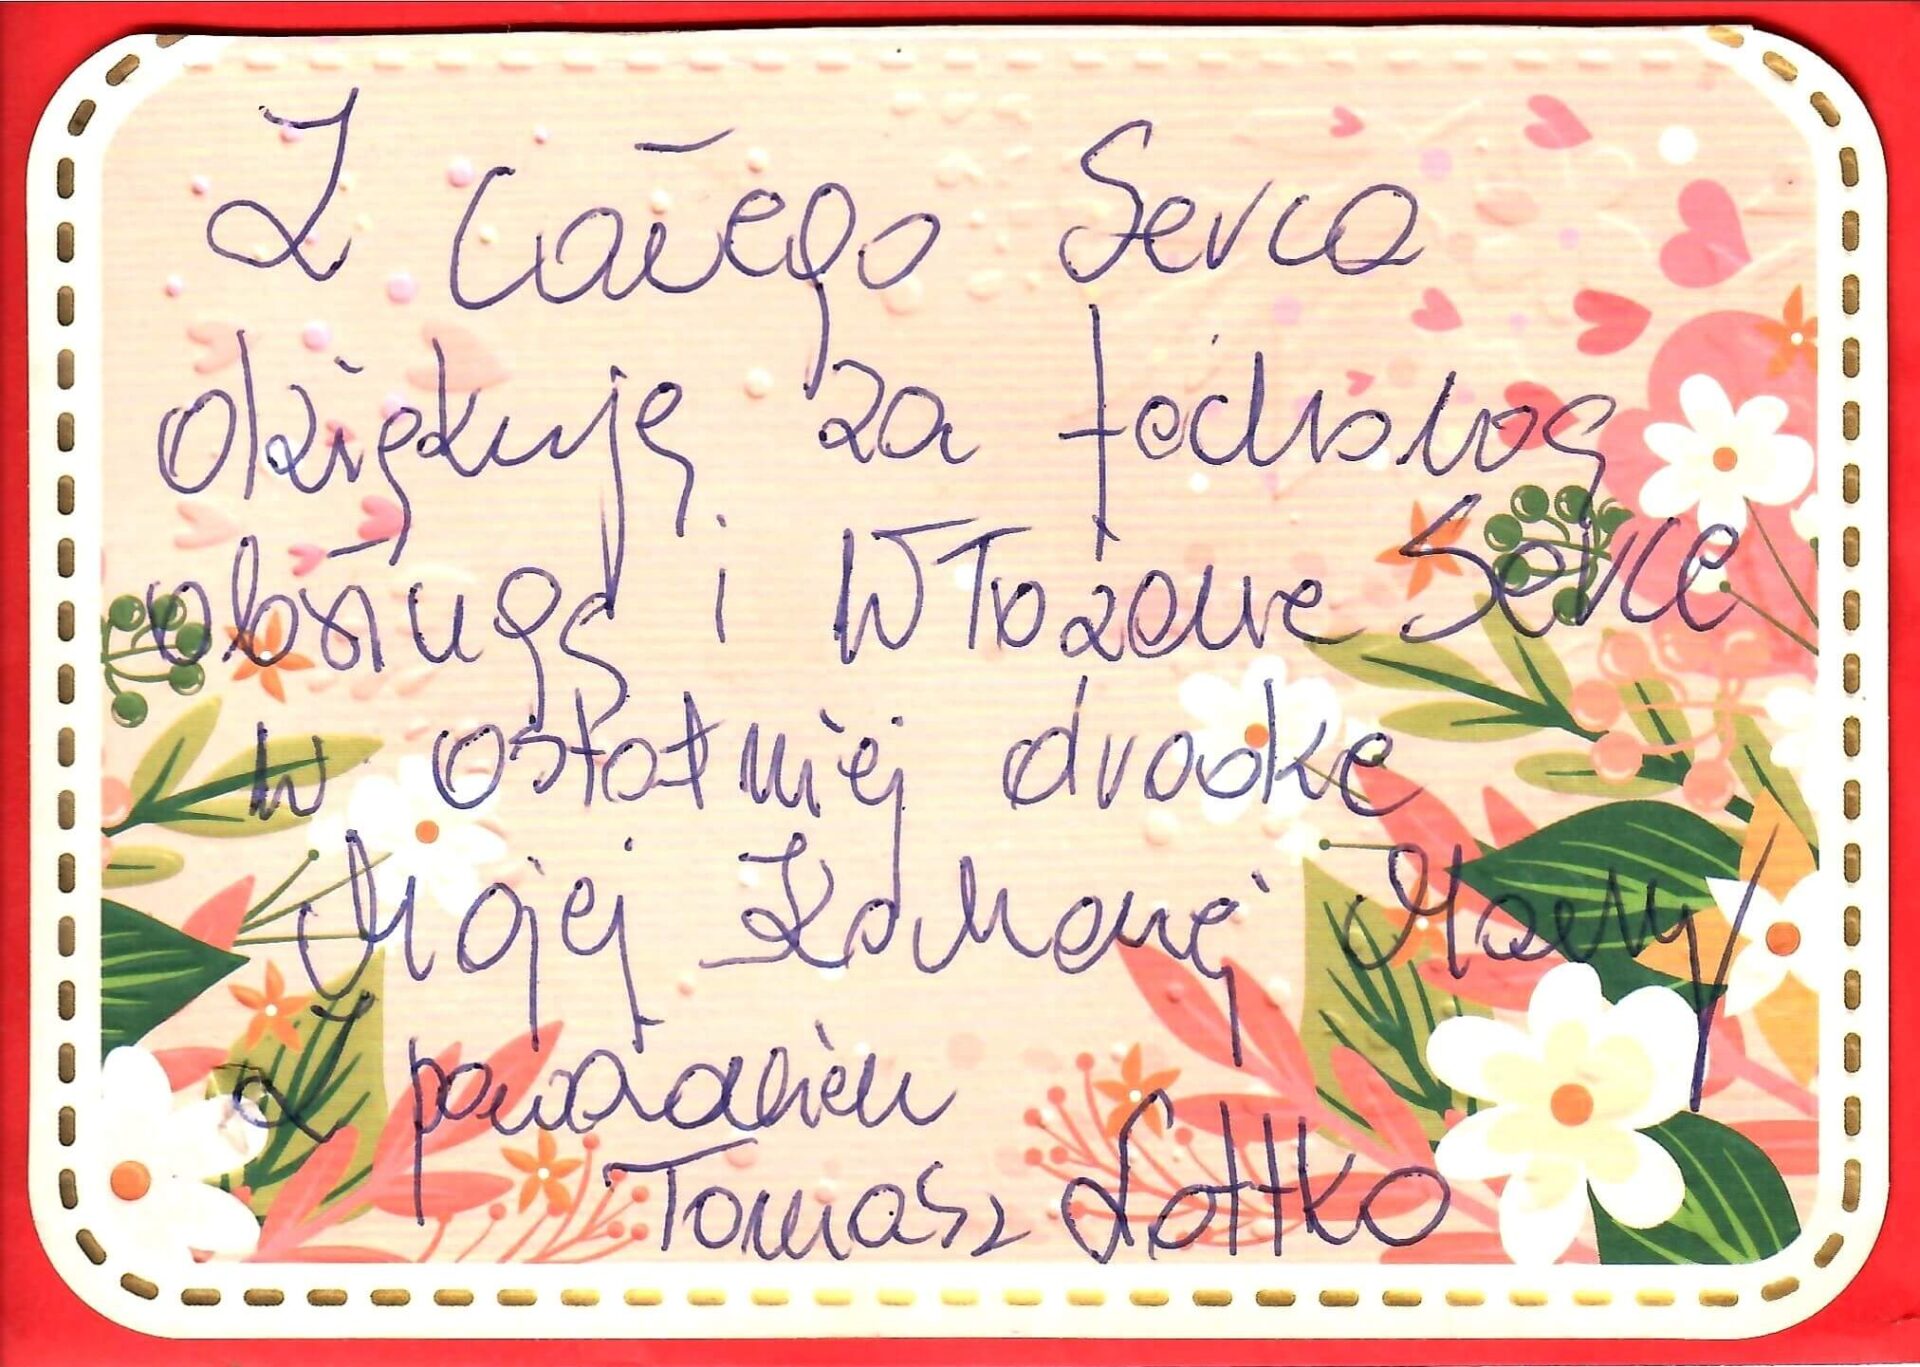 Z całego serca
dziękuję za fachową
obsługę i włożone serce
w ostatniej drodze
Mojej Kochanej Mamy
z poważaniem
Tomasz Lottko